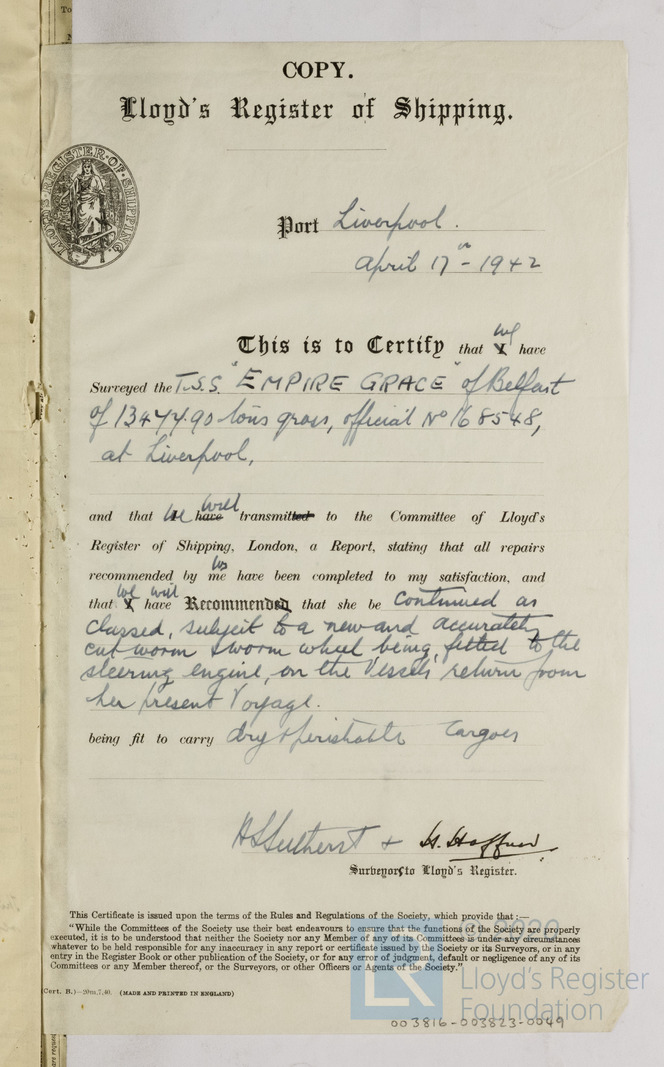 COPY.
Lloyd's Register of Shipping.
LLOYD'S REGISTER OF SHIPPING
Port Liverpool.
April 17th - 1942
This is to Certify that I we have
Surveyed the T.S.S. "EMPIRE GRACE" of Belfast
of 13474.90 tons gross, official No 168548,
at Liverpool,
and that we have will transmitted to the Committee of Lloyd's
Register of Shipping, London, a Report, stating that all repairs
recommended by me us have been completed to my satisfaction, and
that I we have will Recommended that she be continued as
classed, subject to a new and accurately
cut worm & worm wheel being fitted to the
steering engine, on the Vessels return from
her present Voyage.
being fit to carry dry & perishable Cargoes
& H. Haffner
Surveyors to Lloyd's Register.
This Certificate is issued upon the terms of the Rules and Regulations of the Society, which provide that :—
"While the Committees of the Society use their best endeavours to ensure that the functions of the Society are properly
executed, it is to be understood that neither the Society nor any Member of any of its Committees is under any circumstances
whatever to be held responsible for any inaccuracy in any report or certificate issued by the Society or its Surveyors, or in any
entry in the Register Book or other publication of the Society, or for any error of judgment, default or negligence of any of its
Committees or any Member thereof, or the Surveyors, or other Officers or Agents of the Society."
(Cert. B.)—20m,7,40. (MADE AND PRINTED IN ENGLAND)
© 2020
LR
Lloyd's Register
Foundation
003816-003823-0049